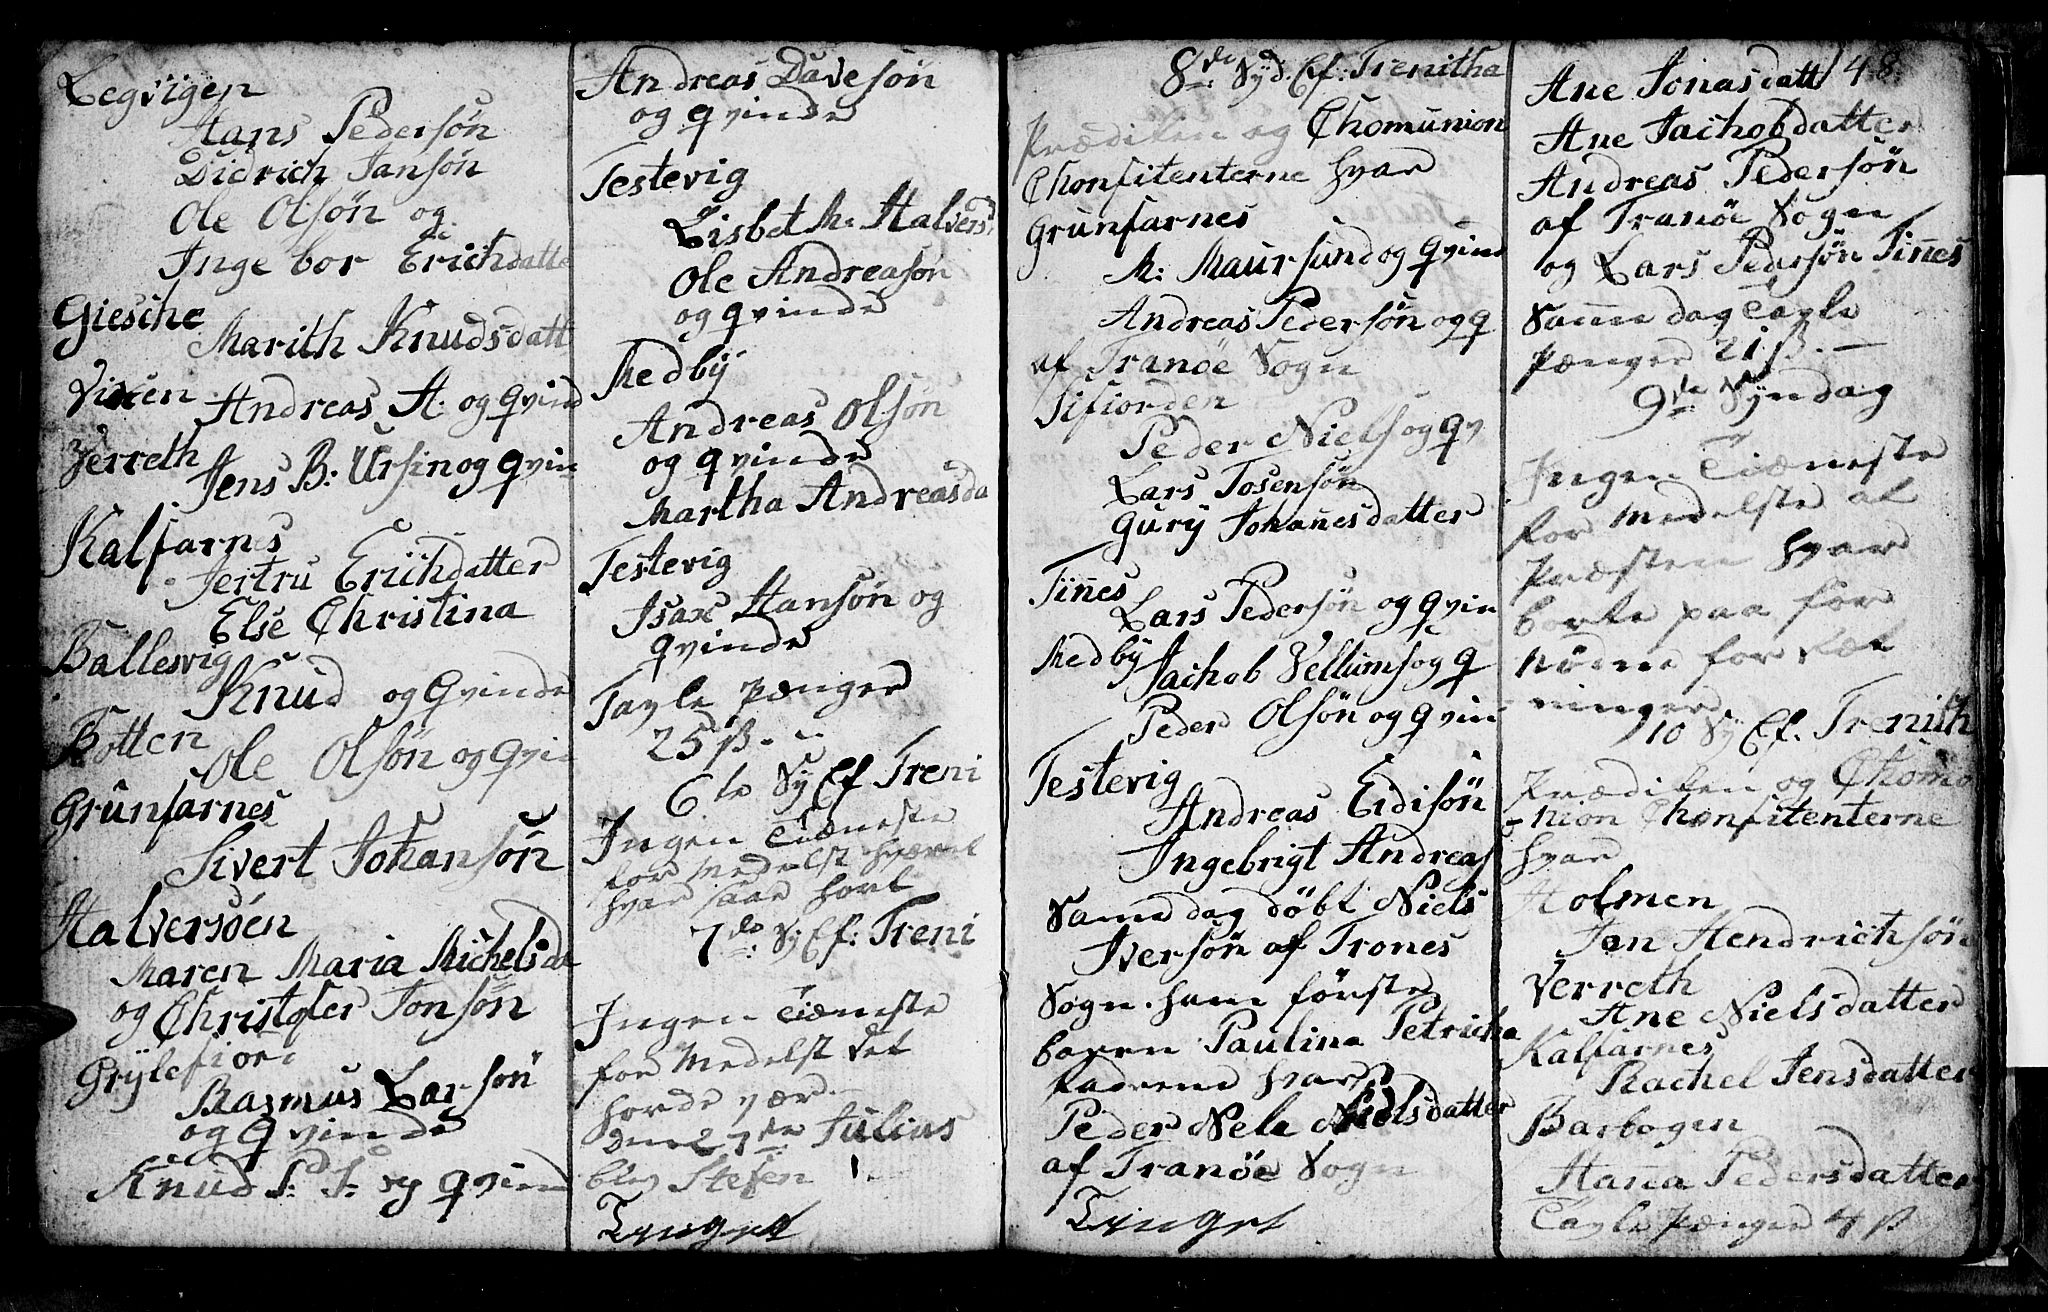 Legvigen
Hans Pedersøn
Didrich Jansøn
Ole Olsøn og
Inge bor Erichdatte
Giesche
Marith Knudsdatt
Vixen Andreas A: og qvind
Verreth
Jens B: Ursin og qvin
Kalfarnes
Jertru Erichdatter
Else Christina
Ballesvig
Knud og Qvinde
Botten
Ole Olsøn og Qvi
Grunfarnes
Sivert Johansøn
Halversøen
Maren Maria Michelsda
og Christofer Jonsøn
Grÿlefior
Rasmus Larsøn
og Qvinde
Knud P: J: og qvind
Andreas Davesøn
og qvinde
Testevig
Lisbet M: Halvers
Ole Andreasøn
og qvinde
Medbÿ
Andreas Olsøn
og qvinde
Martha Andreasda
Testevig
Isax Hansøn og
qvinde
Tavle Pænger
25 ß. -
6te Sy Ef Treni
Ingen Tiæneste
for Medelst
hvar saar hort
7de Sy Ef: Treni
Ingen Tiæneste
for Medelst det
horde vær.
Den 27de Julius
blev Stefen 1.
Tynget
8de Syd: Ef: Trenitha
Prædiken og Chomunion
Chonfitenterne hvar
Grunfarnes
M: Maursund og Qvind
Andreas Pedersøn og q
af Tranöe Sogn
Sifiorden
Peder Niels og qv
Lars Tosensøn
Gury Johanesdatter
Tines
Lars Pedersøn og qvin
Medby
Jachob Vellums og q
Peder Olsøn og qvin
Testevig
Andreas Eidisøn
Ingebrigt Andreas
Same dag døbt Niels
Iversøn af Trones
Sogn. ham føriste
baren Paulina Petricha
fadrene hvar
Peder Nele Nielsdatter
af Tranöe Sogn
Tynget
148
Ane Jonasdatt
Ane Jachobdatter
Andreas Pedersøn
af Tranöe Sogn
og Lars Pedersøn Tines
Same dag Tavle
Pænger 21 ß. -
9de Syndag
Ingen Tiæneste
for Medelste at
Præsten hvar
borte paa for
nødne forret
ninger
10 Sy Ef: Trenith
Prædiken og Chomo
-nion Chonfitenterne
hvar
Holmen
Jan Hendrichsøn
Verreth
Ane Nielsdatter
Kalfarnes
Rachel Jensdatter
Barbogen
Hana Pedersdatter
Tavle Pænger 4 ß